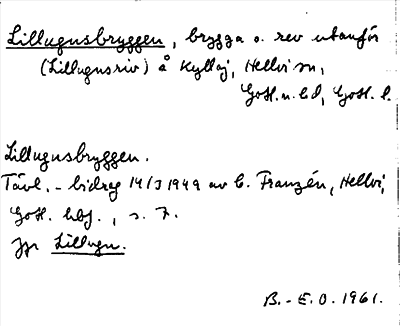 Lillugnsbryggen, brygga o. rev utanför
(Lillugnsriv) å Kyllaj, Hellvi sn,
Gotl. n. hd, Gotl. l.
Lillugnsbryggen.
Tävl. - bidrag 14/3 1949 av C. Franzén, Hellvi,
Gotl. hbg., s. 7.
Jfr Lillugn.
B. - E. O. 1961.